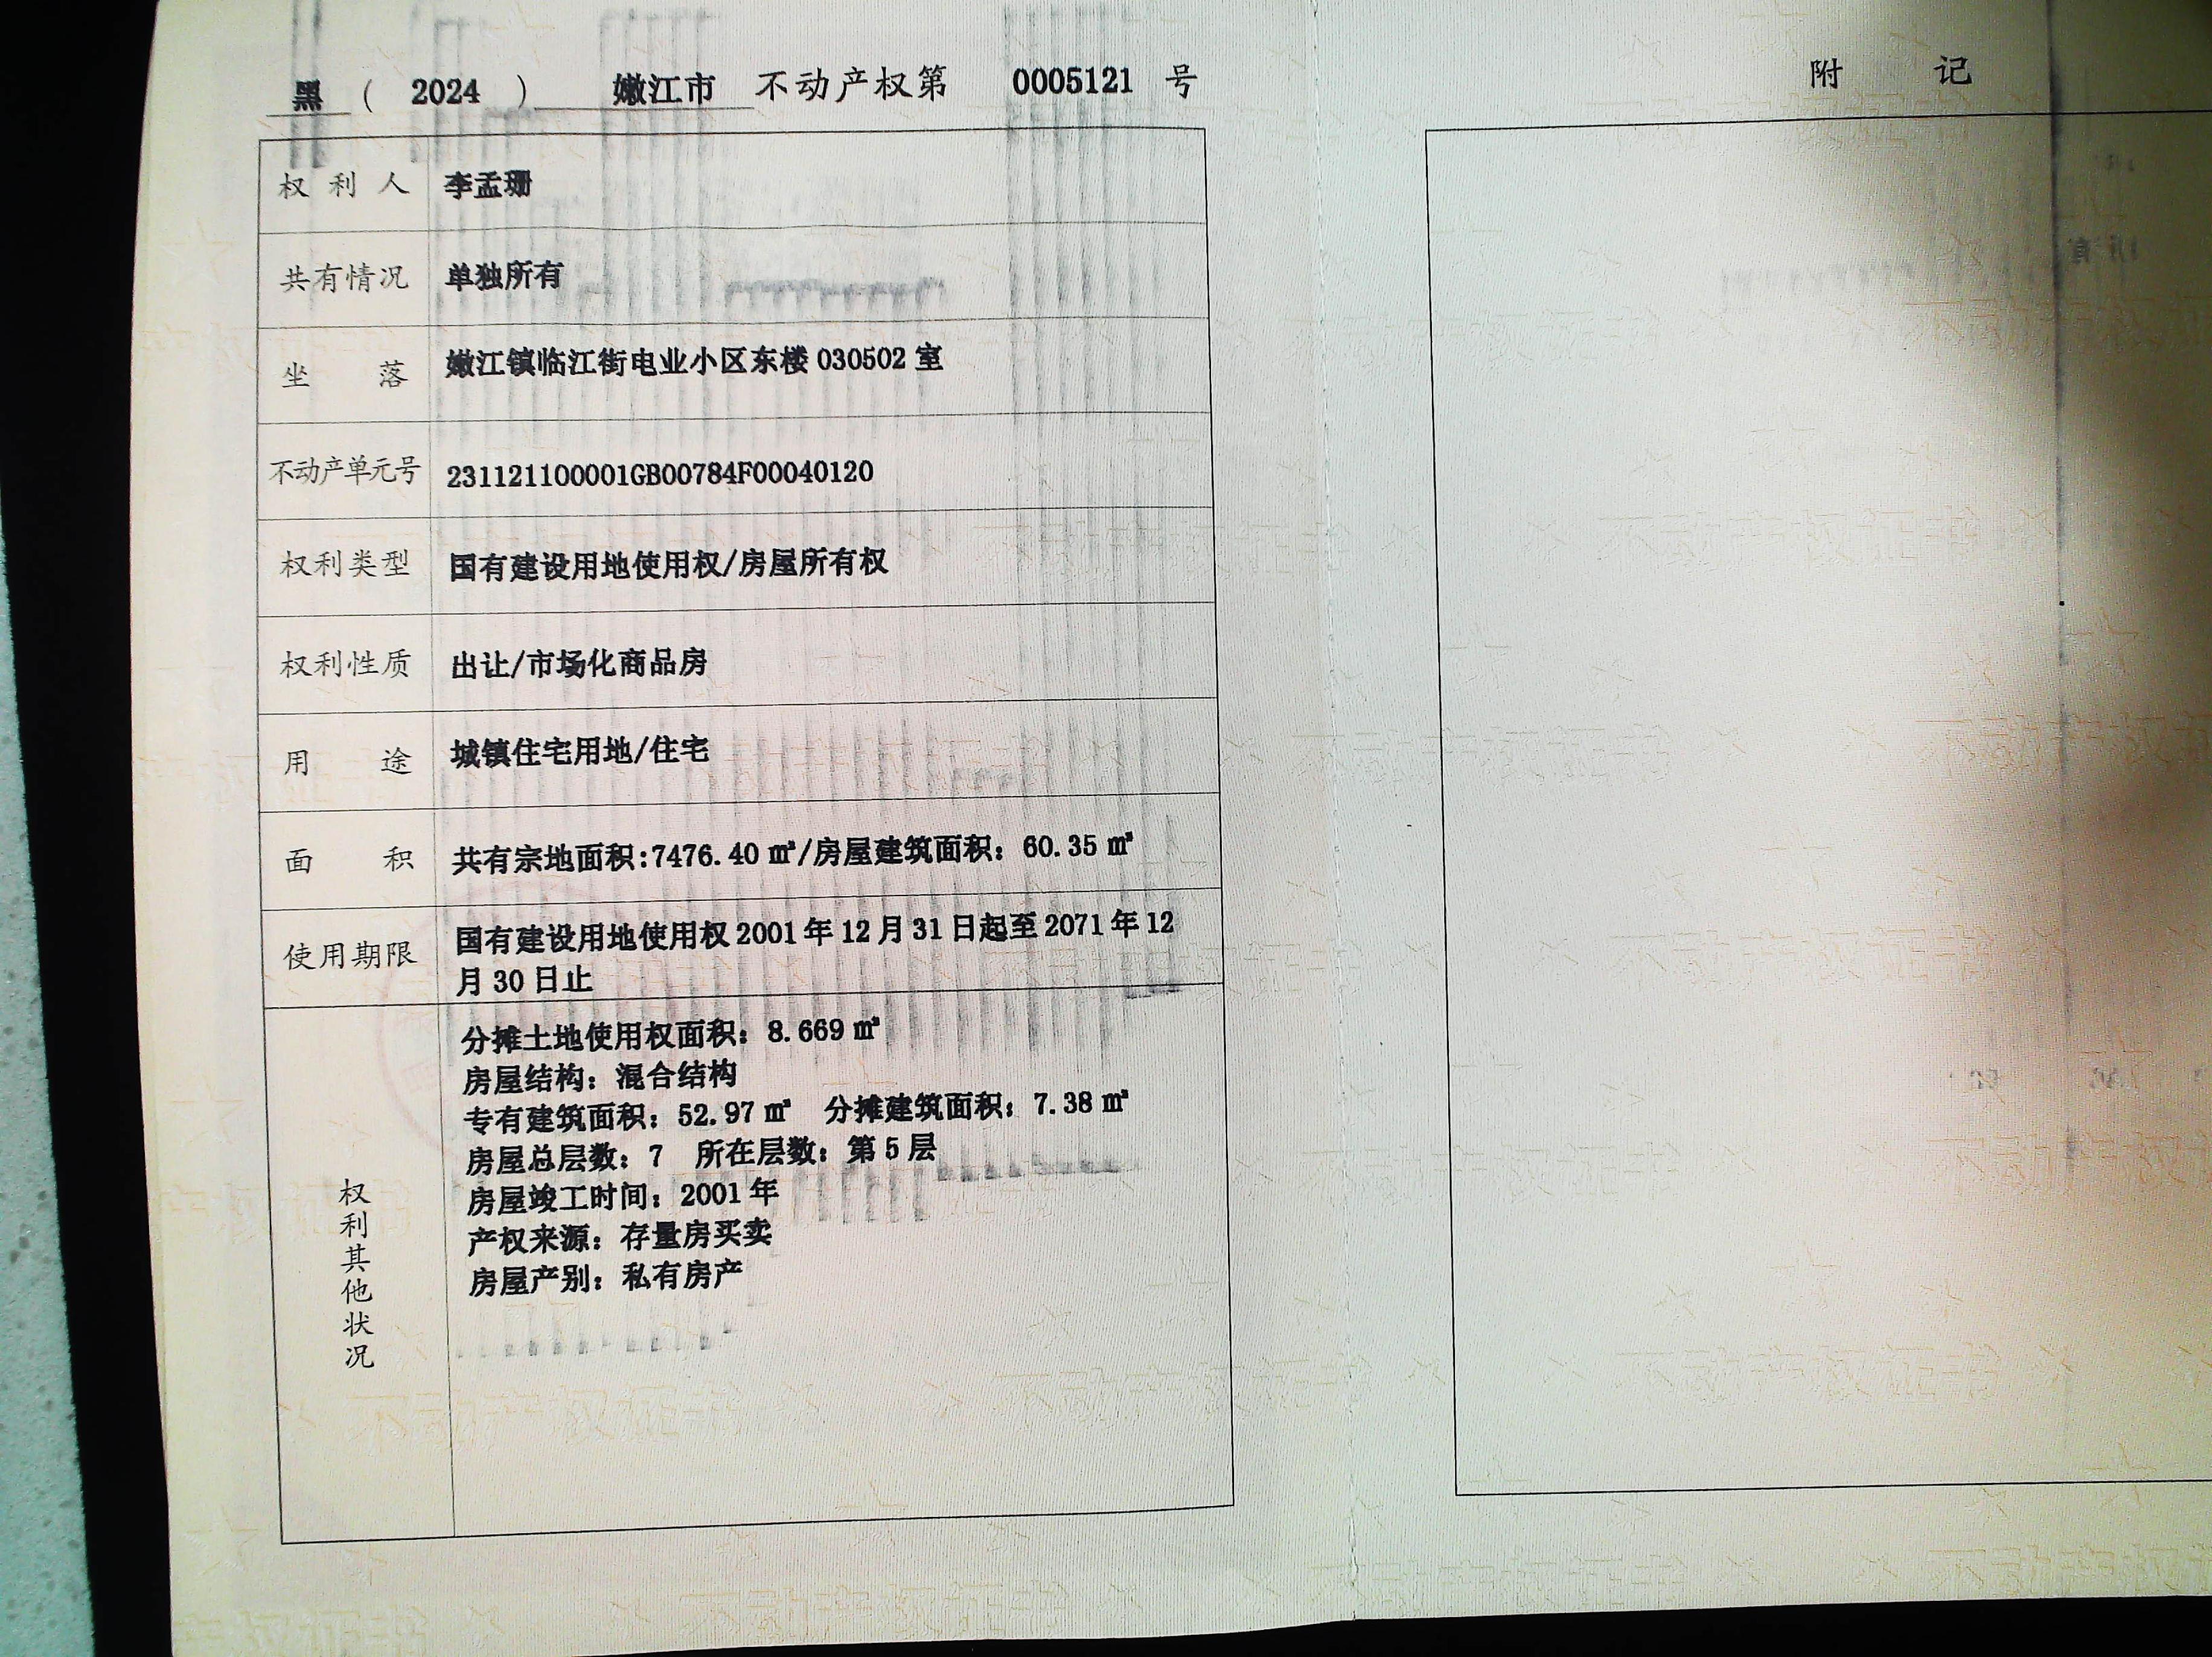 黑 ( 2024 ) 嫩江市 不动产权第 0005121 号
权利人 李孟珊
共有情况 单独所有
坐落 嫩江镇临江街电业小区东楼 030502 室
不动产单元号 231121100001GB00784F00040120
权利类型 国有建设用地使用权/房屋所有权
权利性质 出让/市场化商品房
用途 城镇住宅用地/住宅
面积 共有宗地面积:7476.40 ㎡/房屋建筑面积：60.35 ㎡
使用期限 国有建设用地使用权 2001 年 12 月 31 日起至 2071 年 12
月 30 日止
权利其他状况
分摊土地使用权面积：8.669 ㎡
房屋结构：混合结构
专有建筑面积：52.97 ㎡ 分摊建筑面积：7.38 ㎡
房屋总层数：7 所在层数：第 5 层
房屋竣工时间：2001 年
产权来源：存量房买卖
房屋产别：私有房产
附记